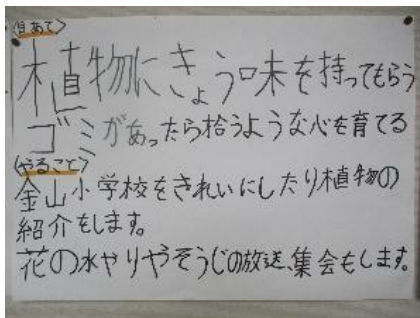 〈目あて〉
植物にきょう味を持ってもらう
ゴミがあったら拾うような心を育てる
〈やること〉
金山小学校をきれいにしたり植物の
紹介をします。
花の水やりやそうじの放送、集会もします。